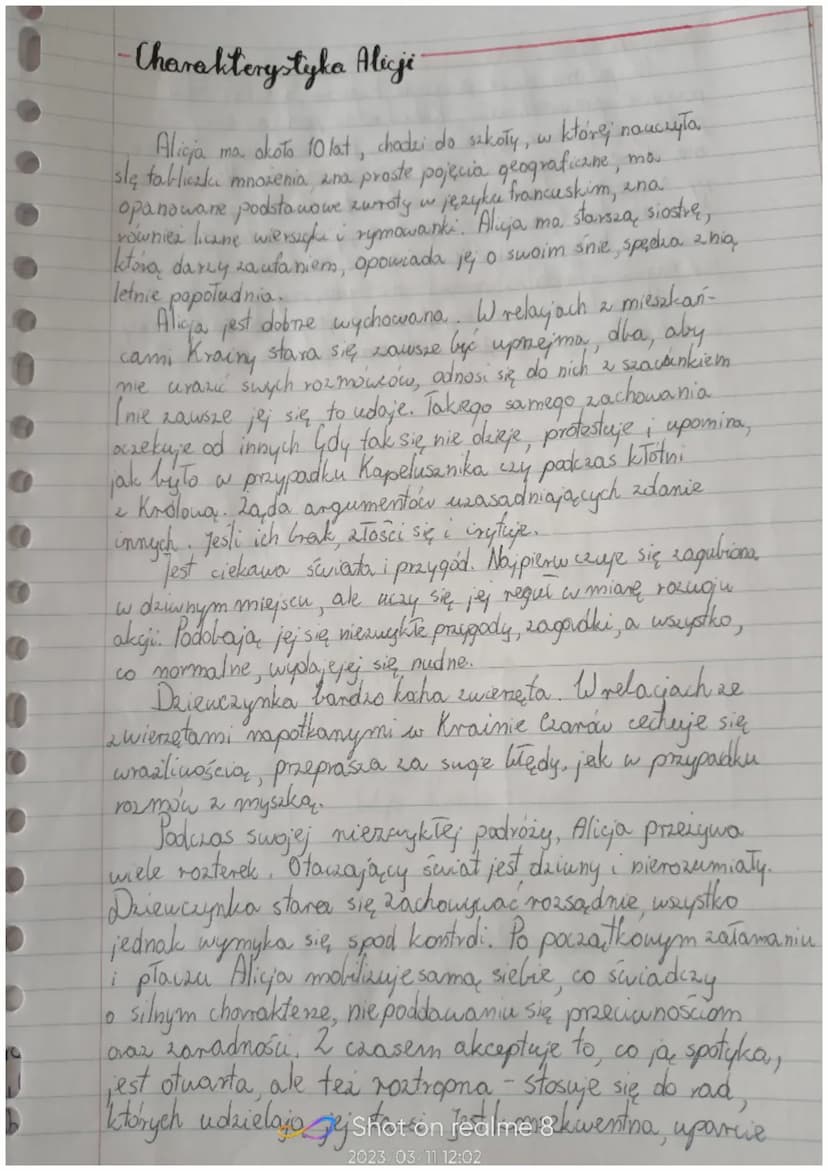 - Charakterystyka Alicji
Alicja ma około 10 lat, chodzi do szkoły, w której nauczyła
się tabliczki mnożenia, zna proste pojęcia geograficzne, ma
opanowane podstawowe zwroty w języku francuskim, zna
również liczne wierszyki i rymowanki. Alicja ma starszą siostrę,
którą darzy zaufaniem, opowiada jej o swoim śnie, spędza z nią
letnie popołudnia.
Alicja jest dobrze wychowana. W relacjach z mieszkań-
cami Krainy stara się zawsze być uprzejma, dba, aby
nie urazić swych rozmówców, odnosi się do nich z szacunkiem
(nie zawsze jej się to udaje. Takiego samego zachowania
oczekuje od innych. Gdy tak się nie dzieje, protestuje i upomina,
jak było w przypadku Kapelusznika czy podczas kłótni
z Królową. Żąda argumentów uzasadniających zdanie
innych. Jeśli ich brak, złości się i irytuje.
Jest ciekawa świata i przygód. Najpierw czuje się zagubiona
w dziwnym miejscu, ale uczy się jej reguł w miarę rozwoju
akcji. Podobają jej się niezwykłe przygody, zagadki, a wszystko,
co normalne, wydaje jej się nudne.
Dziewczynka bardzo kocha zwierzęta. W relacjach ze
zwierzętami napotkanymi w Krainie Czarów cechuje się
wrażliwością, przeprasza za swoje błędy, jak w przypadku
rozmów z myszką.
Podczas swojej niezwykłej podróży, Alicja przeżywa
wiele rozterek. Otaczający świat jest dziwny i niezrozumiały.
Dziewczynka stara się zachowywać rozsądnie, wszystko
jednak wymyka się spod kontroli. Po początkowym załamaniu
i płaczu Alicja mobilizuje samą siebie, co świadczy
o silnym charakterze, niepoddawaniu się przeciwnościom
oraz zaradności. Z czasem akceptuje to, co ją spotyka,
jest otwarta, ale też roztropna - stosuje się do rad,
których udzielają jej Jest konsekwentna, uparcie
Shot on realme 8
2023.03.11 12:02